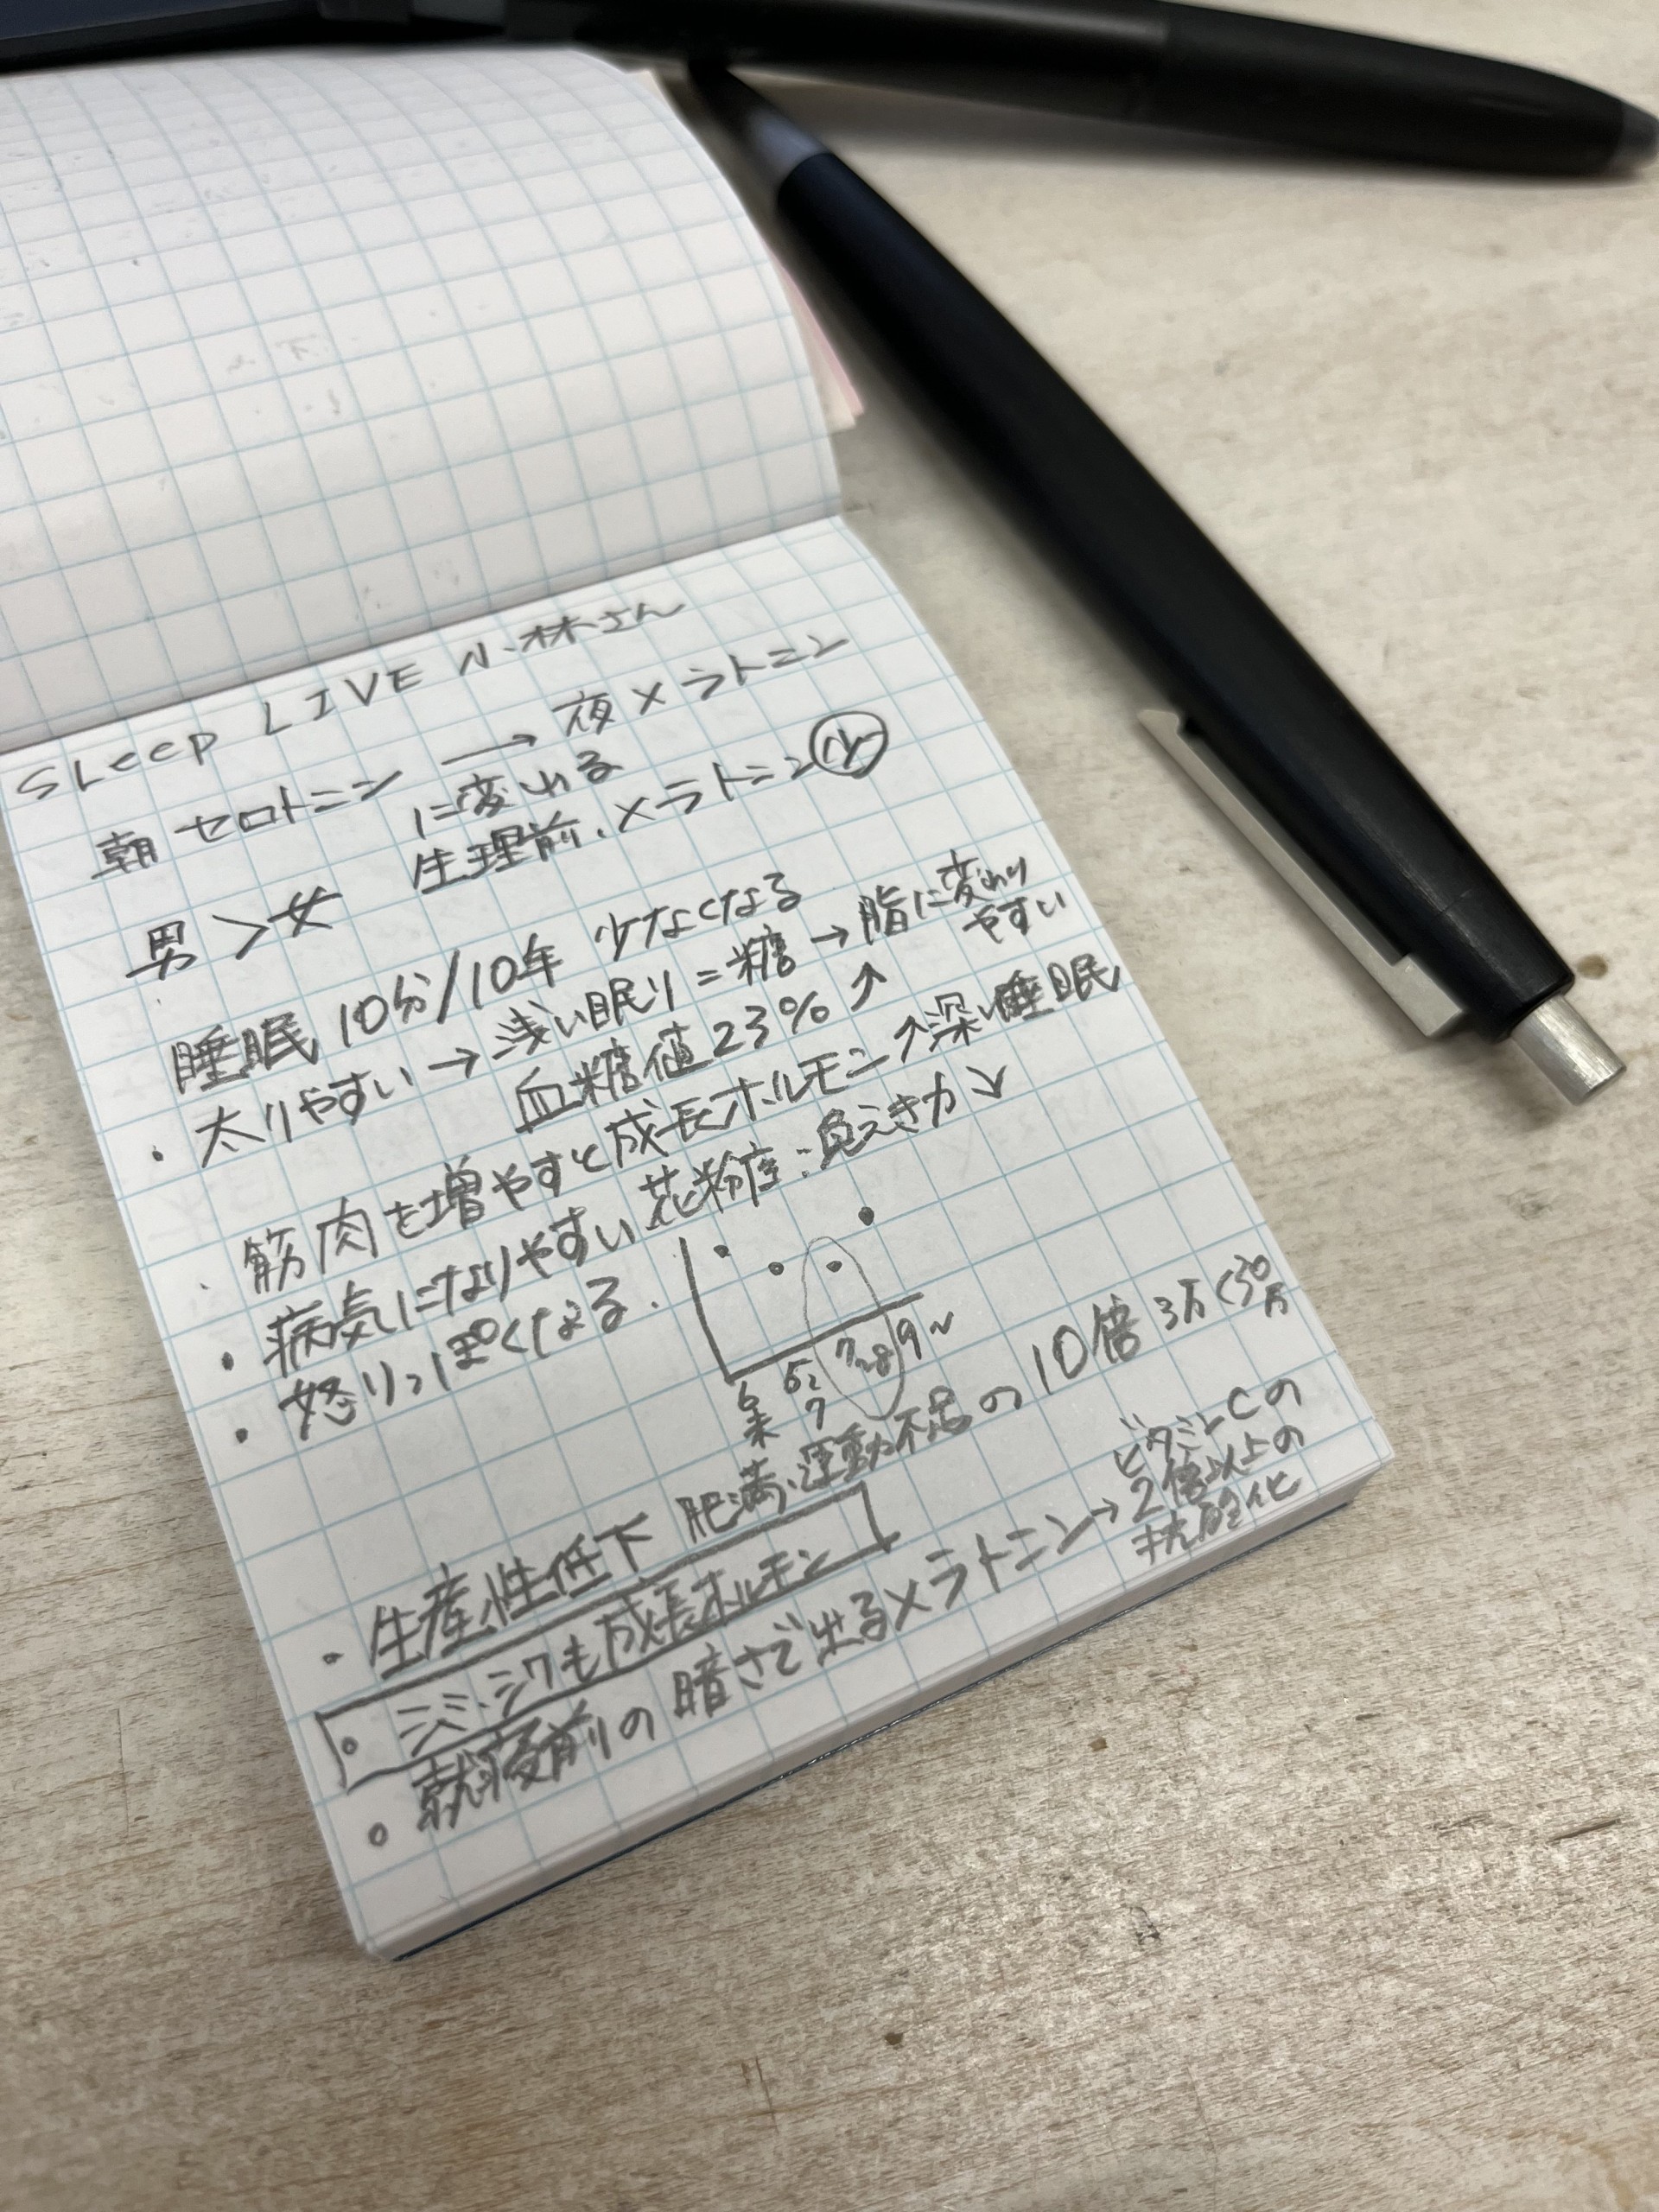 SLeep LIVE 小林さん
朝 セロトニン → 夜 メラトニン
に変わる
男 > 女 生理前.メラトニン 少
睡眠 10分/10年 少なくなる
・太りやすい → 浅い眠り = 糖 → 脂に変わり
やすい
血糖値 23% ↑
・筋肉を増やすと成長ホルモン ↗ 深い睡眠
・病気になりやすい 花粉症:免えき力 ↘
・怒りっぽくなる.
6未 6~7 7~8 9~
・生産性低下 肥満・運動不足の 10倍 3万<30万
・シミ・シワも成長ホルモン
・就寝前の暗さで出るメラトニン → ビタミンCの
2倍以上の
抗酸化